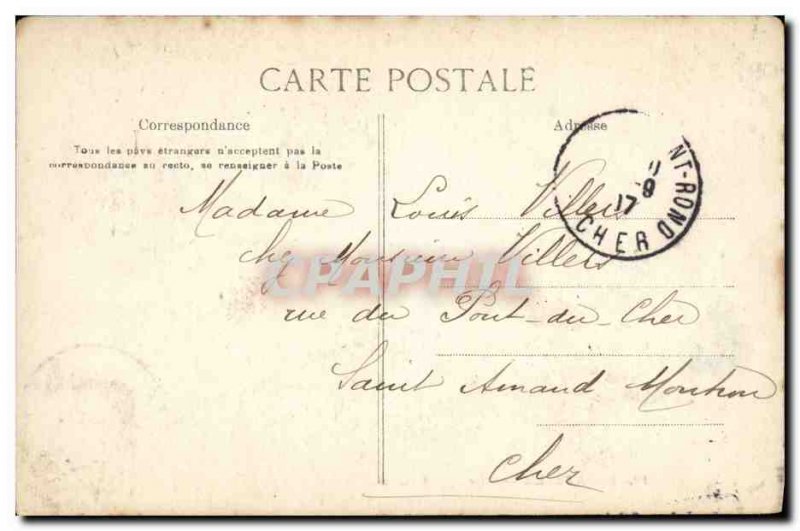 CARTE POSTALE
Correspondance
Adresse
Tous les pays étrangers n'acceptent pas la
correspondance au recto, se renseigner à la Poste
NT-ROND
CHER
17 9
Madame Louis Villers
chez Monsieur Villers
CPAPHIL
rue du Pont-du-Cher
Saint Amand Montron
Cher